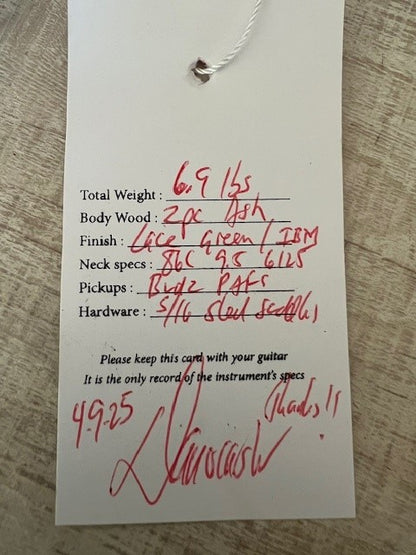 Total Weight : 6.9 lbs
Body Wood : 2pc Ash
Finish : Green / IBM
Neck specs : 86C 9.5 6125
Pickups : PAFs
Hardware : 5/16
Please keep this card with your guitar
It is the only record of the instrument's specs
4-9-25
Thanks!!